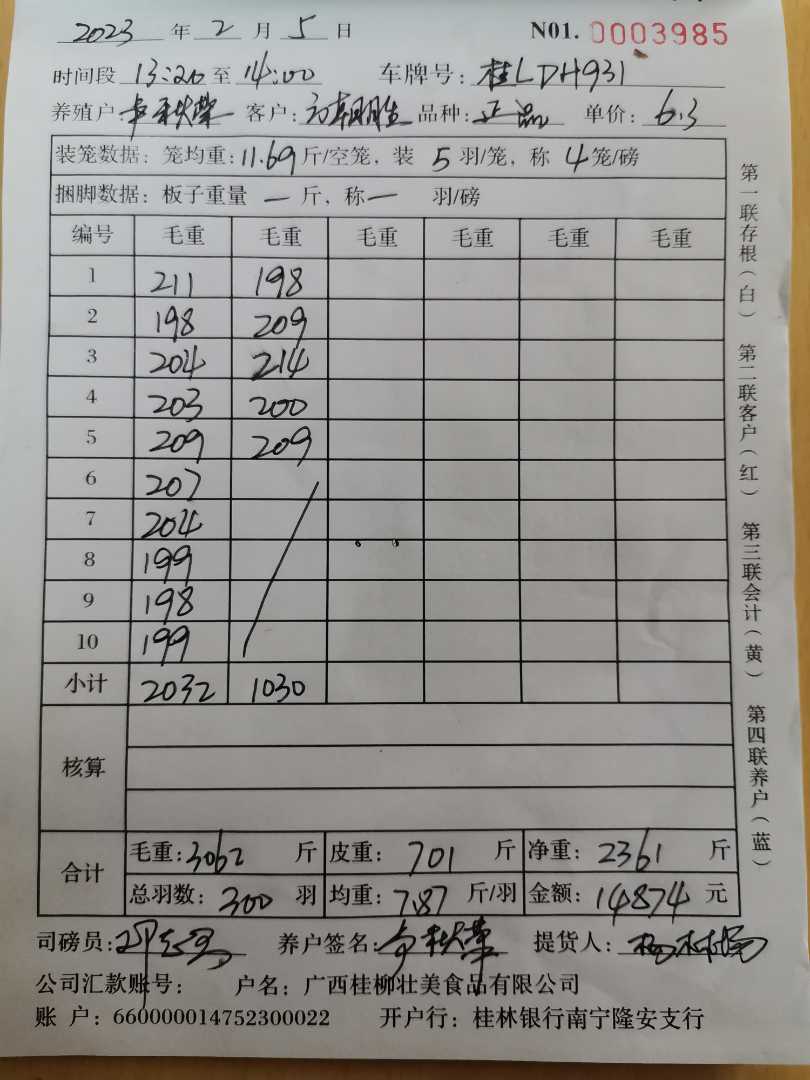 2023 年 2 月 5 日 N01. 0003985
时间段 13:20 至 14:00 车牌号: 桂LDH931
养殖户 客户: 品种: 正品 单价: 6.3
装笼数据: 笼均重: 11.69 斤/空笼, 装 5 羽/笼, 称 4 笼/磅
捆脚数据: 板子重量 — 斤, 称 — 羽/磅
编号 毛重 毛重 毛重 毛重 毛重 毛重
1 211 198
2 198 209
3 204 214
4 203 200
5 209 209
6 207
7 204
8 199
9 198
10 199
小计 2032 1030
核算
合计 毛重: 3062 斤 皮重: 701 斤 净重: 2361 斤
总羽数: 300 羽 均重: 7.87 斤/羽 金额: 14874 元
司磅员: 养户签名: 提货人:
公司汇款账号: 户名: 广西桂柳壮美食品有限公司
账 户: 660000014752300022 开户行: 桂林银行南宁隆安支行
第一联存根(白) 第二联客户(红) 第三联会计(黄) 第四联养户(蓝)